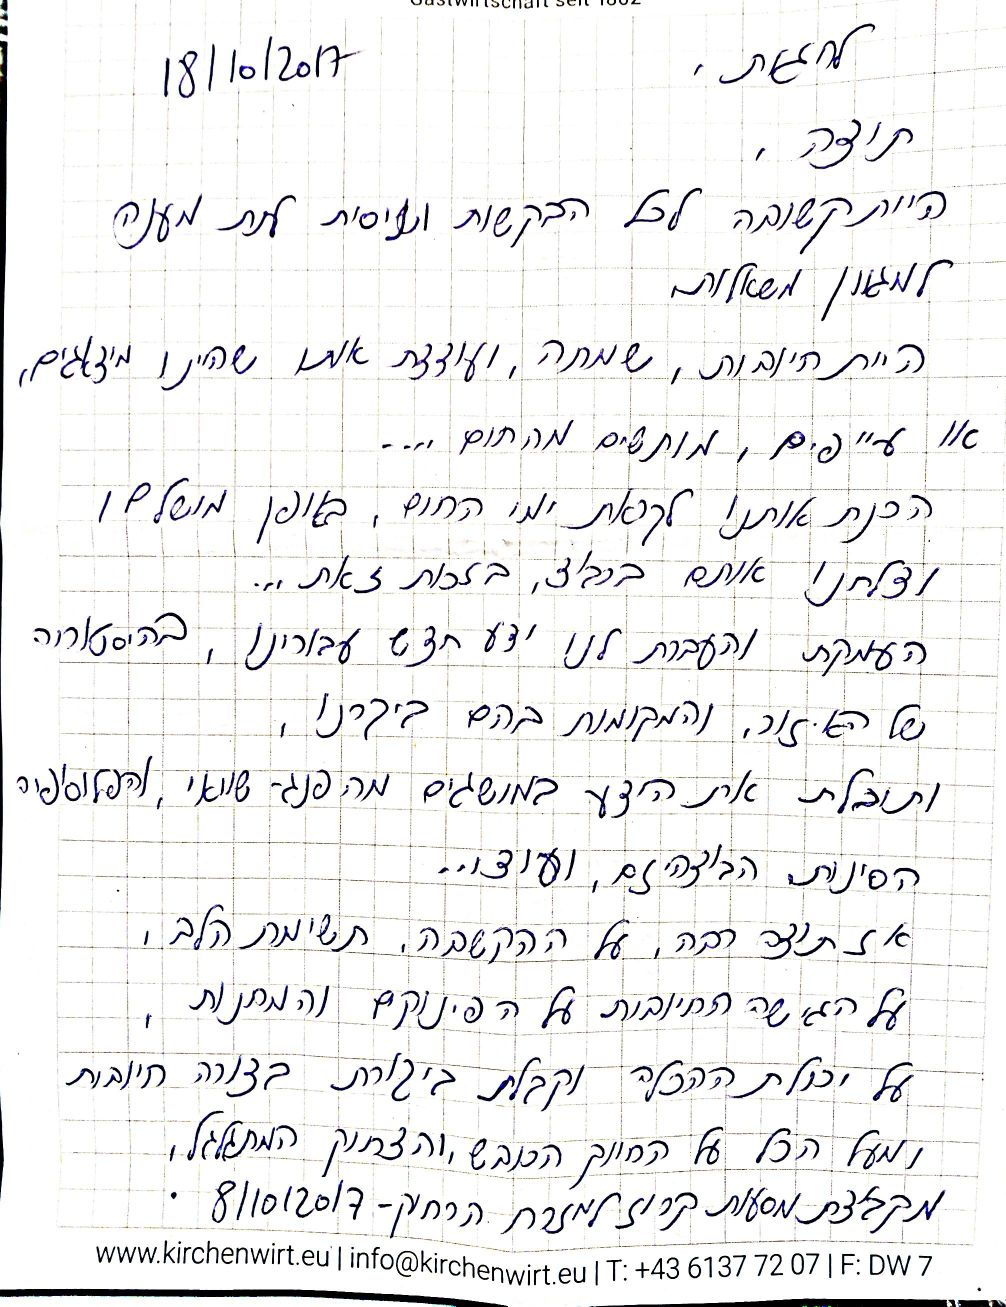 Gastwirtschaft seit 1882
18/10/2017
תודה,
היית קשובה לכל הבקשות וניסית לתת מענה
למגוון משאלות.
היית חיובית, שמחה, ועודדת אותנו שהיינו מיואשים,
או עייפים, מותשים מהחום ....
הכנת אותנו לקראת ימי החום, באופן מושלם,
וצלחנו אותם בכבוד, בזכות זאת ...
העמקת והעברת לנו ידע חדש עבורינו, בהיסטוריה
של האיזור, והמקומות בהם ביקרנו,
ותיבלת את הידע במושגים מהפנג- שוואי, והפילוסופיה
הסינית, הבודהיזם, ועוד...
אז תודה רבה, על ההקשבה, תשימת הלב,
על הגישה החיובית על הפינוקים והמתנות,
על יכולת ההכלה וקבלת ביקורת בצורה חיובית
ומעל הכל על החיוך הכובש, והצחוק המתגלגל,
מקבוצת מסעות קרוז למזרח הרחוק - 8/10/2017.
www.kirchenwirt.eu | info@kirchenwirt.eu | T: +43 6137 72 07 | F: DW 7